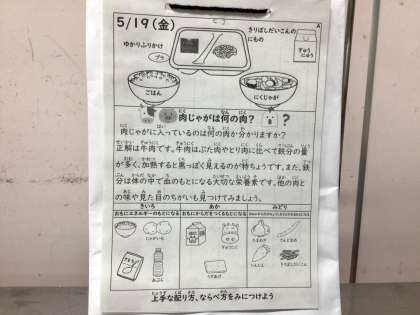 5/19(金)
きりぼしだいこんの
にもの
ゆかりふりかけ
プラ
ぎゅう
にゅう
ごはん
にくじゃが
肉じゃがは何の肉?
肉じゃがに入っているのは何の肉か分かりますか?
正解は牛肉です。牛肉はぶた肉やとり肉に比べて鉄分の量
が多く、加熱すると黒っぽく見えるのが特ちょうです。また、鉄
分は体の中で血のもとになる大切な栄養素です。他の肉と
の味や見た目のちがいも見つけてみましょう。
きいろ あか みどり
おもにエネルギーのもとになる おもにからだをつくるもとになる
じゃがいも
ぎゅうにく
たまねぎ
さんどまめ
にんじん
きりぼしだいこん
うすあげ
上手な配り方、ならべ方をみにつけよう